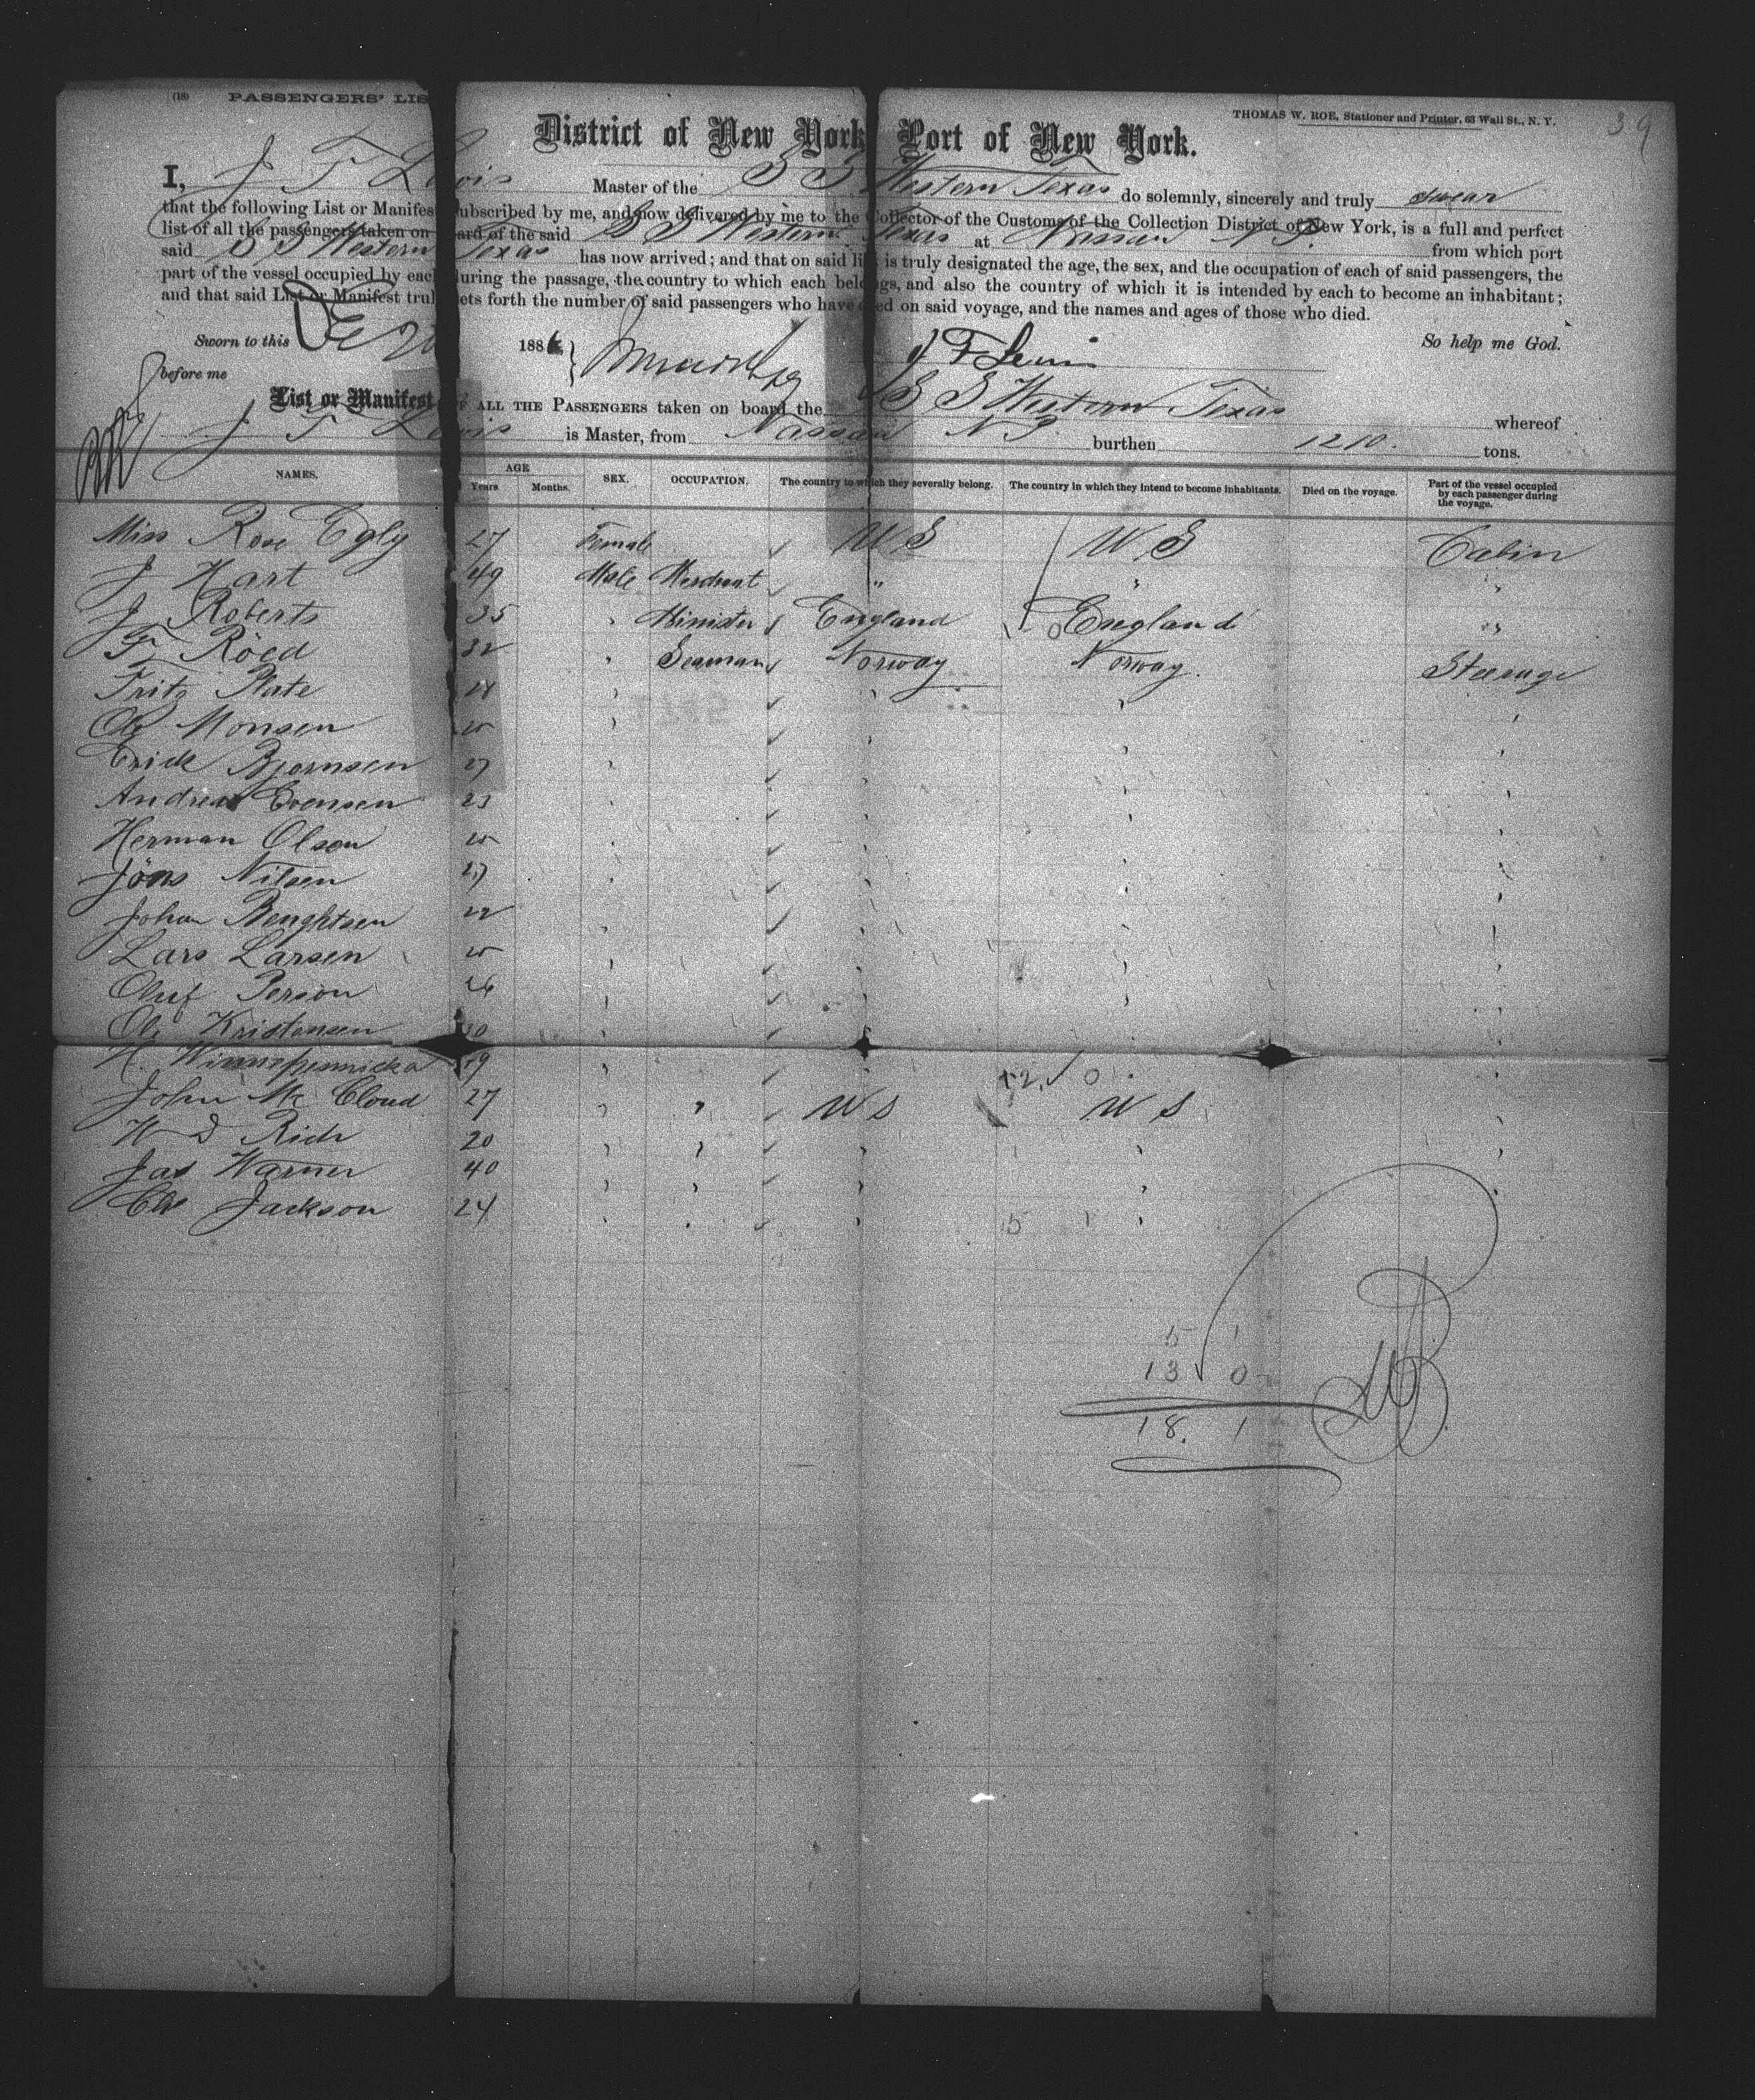 (18) PASSENGERS' LIS
THOMAS W. ROE, Stationer and Printer, 63 Wall St., N. Y.
39
District of New York Port of New York.
I, J F Lewis Master of the S S Western Texas do solemnly, sincerely and truly swear
that the following List or Manifest subscribed by me, and now delivered by me to the Collector of the Customs of the Collection District of New York, is a full and perfect
list of all the passengers taken on board of the said S S Western Texas at Nassau N P from which port
said S S Western Texas has now arrived; and that on said list is truly designated the age, the sex, and the occupation of each of said passengers, the
part of the vessel occupied by each during the passage, the country to which each belongs, and also the country of which it is intended by each to become an inhabitant;
and that said List or Manifest truly sets forth the number of said passengers who have died on said voyage, and the names and ages of those who died.
Sworn to this 188 So help me God.
before me J F Lewis
List or Manifest OF ALL THE PASSENGERS taken on board the S S Western Texas whereof
J F Lewis is Master, from Nassau N P. burthen 1210. tons.
NAMES. AGE Years Months. SEX. OCCUPATION. The country to which they severally belong. The country in which they intend to become inhabitants. Died on the voyage. Part of the vessel occupied by each passenger during the voyage.
Miss Rose Egly 27 Female U S U S Cabin
J Hart 49 Male Merchant " " "
J Roberts 35 " Minister England England "
F Röed 32 " Seaman Norway Norway Steerage
Fritz Plate 24 " " " "
Ole Monsen 25 " " " "
Erick Bjornsen 27 " " " "
Andreas Evensen 23 " " " "
Herman Olson 25 " " " "
Jöns Nilsen 27 " " " "
Johan Benghtsen 22 " " " "
Lars Larsen 25 " " " "
Oluf Person 26 " " " "
Ole Kristensen 30 " " " "
H. 19 " "
12 0
John Mc Cloud 27 " " U S U S "
W D Rich 20 " " " "
Jas Warner 40 " " " "
Chs Jackson 24 " " " "
15 1
5 1
13 0
18. 1